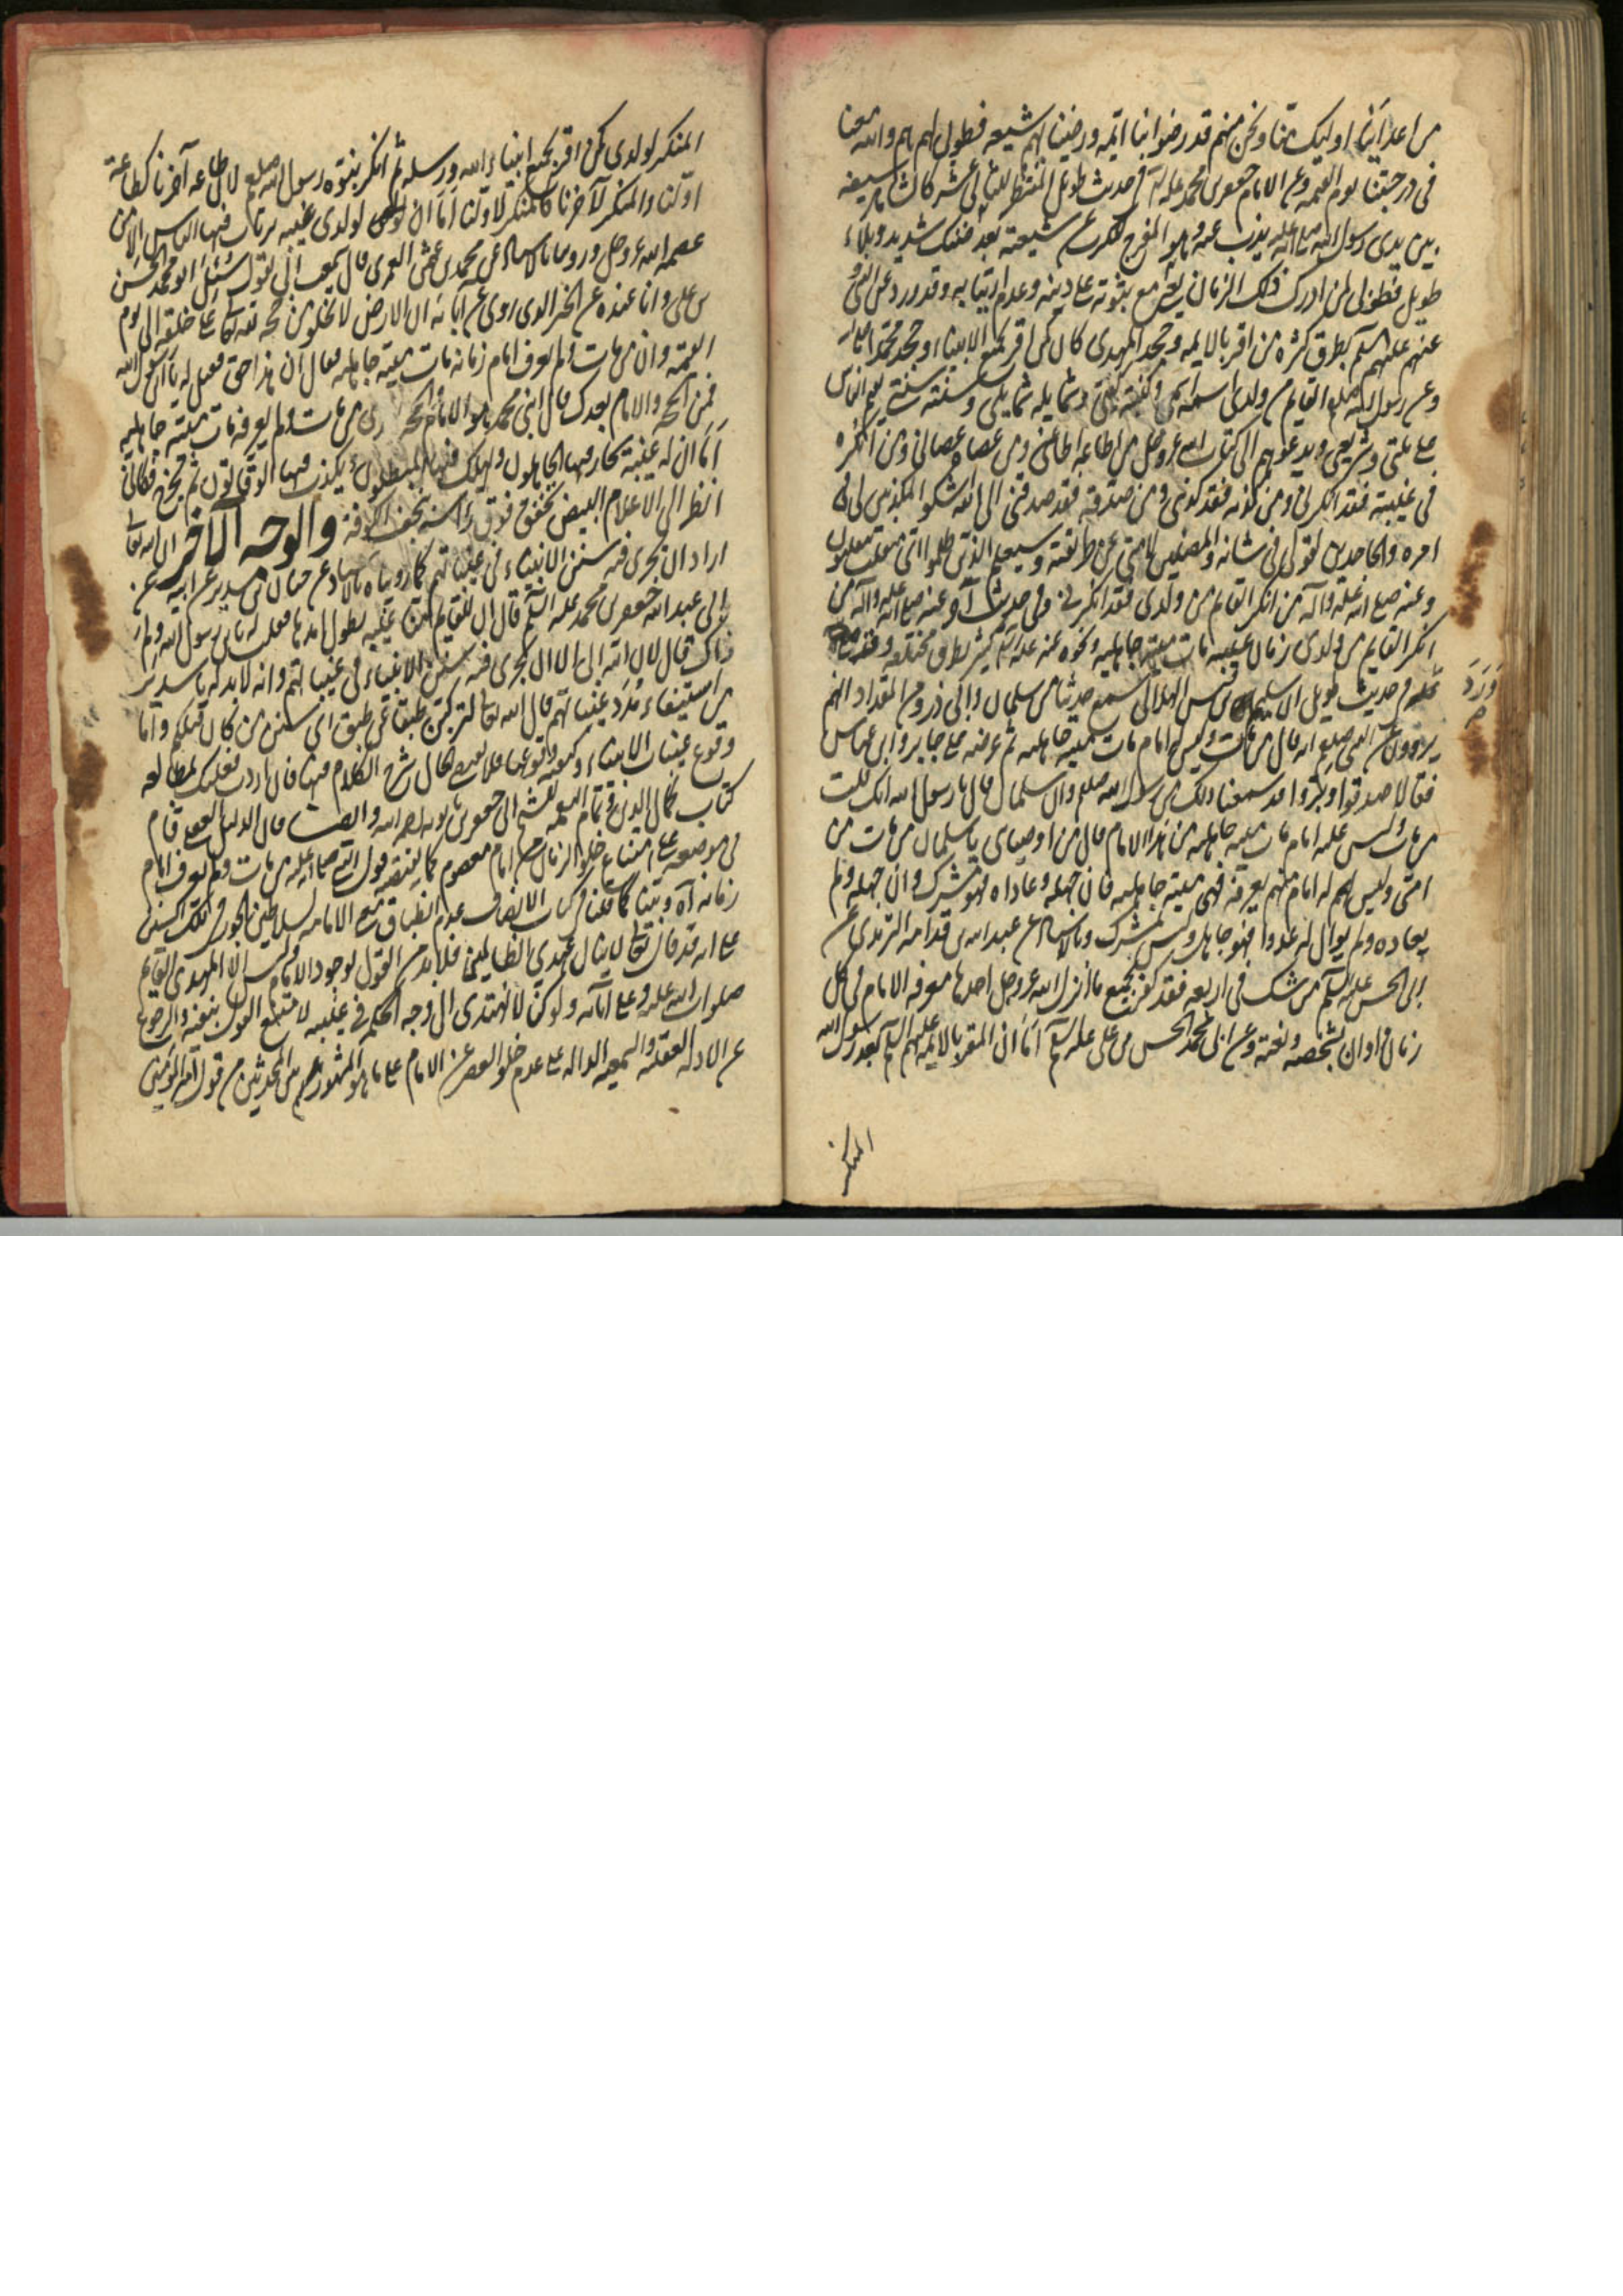 من اعدائنا اوليك منا ونحن منهم قد رضوا بنا ائمة ورضينا بهم شيعه فطوبى لهم هم والله معنا
في درجتنا يوم القيمه وعن الامام جعفر بن محمد عليه في حديث طويل المنتظر للثاني عشر كالشاهر سيفه
بين يدى رسول الله صلى الله عليه يذب عنه وهو المفرج للكرب عن شيعته بعد ضنك شديد وبلاء
طويل فطوبى لمن ادرك ذلك الزمان يعنى مع ثبوته على دينه وعدم ارتيابه وقد ورد عن
عنهم عليهم السلم بطرق كثيره من اقر بالايمه وجحد المهدى كان كمن اقر بجميع الانبياء وجحد محمدا
وعن رسول الله صلعم القايم من ولدى اسمه اسمى وكنيته كنيتى وشمايله شمايلى وسنته سنتى يقيم الناس
على ملتى وشريعتى ويدعوهم الى كتاب الله عز وجل من اطاعه اطاعنى ومن عصاه عصانى ومن انكره
فى غيبته فقد انكرنى ومن كذبه فقد كذبنى ومن صدقه فقد صدقنى الى الله اشكو المكذبين لى فى
امره والجاحدين لقولى فى شانه والمضلين لامتى عن طريقته وسيعلم الذين ظلموا اى منقلب ينقلبون
وعنه صلى الله عليه وآله من انكر القايم من ولدى فقد انكرنى وفى حديث آخر عنه صلى الله عليه وآله من
انكر القايم من ولدى زمان غيبته مات ميتة جاهلية ونحوه عنه عليه كثير بطرق مختلفه
فى حديث طويل الا سليم بن قيس الهلالى سمع حديثا من سلمان وابى ذر ومن المقداد انهم
وَرَدَ
يروون عن النبى صلعم انه قال من مات وليس له امام مات ميتة جاهلية ثم عرضه على جابر وابن عباس
فقالا صدقوا وبروا قد سمعنا ذلك من رسول الله صلعم وان سلمان قال يا رسول الله انك قلت
من مات وليس عليه امام مات ميتة جاهلية من هذا الامام قال من اوصياى يا سلمان من مات من
امتى وليس لهم له امام منهم يعرفه فهى ميتة جاهلية فان جهله وعاداه فهو مشرك وان جهله ولم
يعاده ولم يوال له عدوا فهو جاهل وليس بمشرك وبالاسناد عن عبد الله بن قدامه الترمذى عن
ابى الحسن عليه السلم من شك فى اربعه فقد كفر بجميع ما انزل الله عز وجل احدها معرفه الامام فى كل
زمان واوان بشخصه ونعته وعن ابى محمد الحسن بن على عليه السلم اما ان المقر بالايمه عليهم السلم بعد رسول الله
المنكر
المنكر لولدى كمن اقر بجميع انبياء الله ورسله ثم انكر بنبوه رسول الله صلعم لان طاعه آخرنا كطاعة
اولنا والمنكر لآخرنا كالمنكر لاولنا اما ان لولدى غيبه يرتاب فيها الناس الا من
عصمه الله عز وجل وروينا بالاسناد عن محمد بن عثمن العمرى قال سمعت ابى يقول سئل ابو محمد الحسن
بن على وانا عنده عن الخبر الذى روى عن ابائه ان الارض لا تخلو من حجه لله تعالى على خلقه الى يوم
القيمه وان من مات ولم يعرف امام زمانه مات ميتة جاهلية فقال ان هذا حق فقيل له يا ابن رسول الله
فمن الحجه والامام بعدك قال ابنى محمد هو الامام والحجه بعدى من مات ولم يعرفه مات ميتة جاهلية
اما ان له غيبة يحار فيها الجاهلون ويهلك فيها المبطلون ويكذب فيها الوقاتون ثم يخرج فكانى
انظر الى الاعلام البيض تخفق فوق راسه بنجف الكوفة والوجه الآخر ان الله تعالى
اراد ان تجرى فيه سنن الانبياء فى غيباتهم كما رويناه بالاسناد عن حنان بن سدير عن ابيه عن
ابى عبد الله جعفر بن محمد عليه السلم قال ان للقايم منا غيبه يطول امدها فقلت له يا ابن رسول الله ولم
ذاك قال لان الله ابى الا ان تجرى فيه سنن الانبياء فى غيباتهم وانه لا بد له يا سدير
من استيفاء مدد غيباتهم قال الله تعالى لتركبن طبقا عن طبق اى سنن من كان قبلكم واما
وقوع غيبات الانبياء وكيفية وقوعها فلا يسع المجال شرح الكلام فيها فان اردت فعليك بمطالعه
كتاب كمال الدين وتمام النعمه للشيخ ابى جعفر بن بابويه رحمه الله وايضا فان الدليل العقلى قام
فى موضعه على امتناع خلو الزمان من امام معصوم كما يقتضيه قول النبى صلى الله عليه من مات ولم يعرف امام
زمانه آه وبينا كما قلنا فى كتاب الانصاف عدم انطباق معنى الامامه لسلاطين الجور فى تلك السنين
على انه قد قال تعالى لا ينال عهدى الظالمين فلا بد من القول بوجود الامام وليس الا المهدى القايم
صلوات الله عليه وعلى آبائه ولو كنا لا نهتدى الى وجه الحكم فى غيبته لامتنع القول بنفيه والرجوع
عن الادله العقليه والسمعيه الداله على عدم خلو العصر عن الامام على ما هو المشهور بين المحدثين من قول امير المومنين